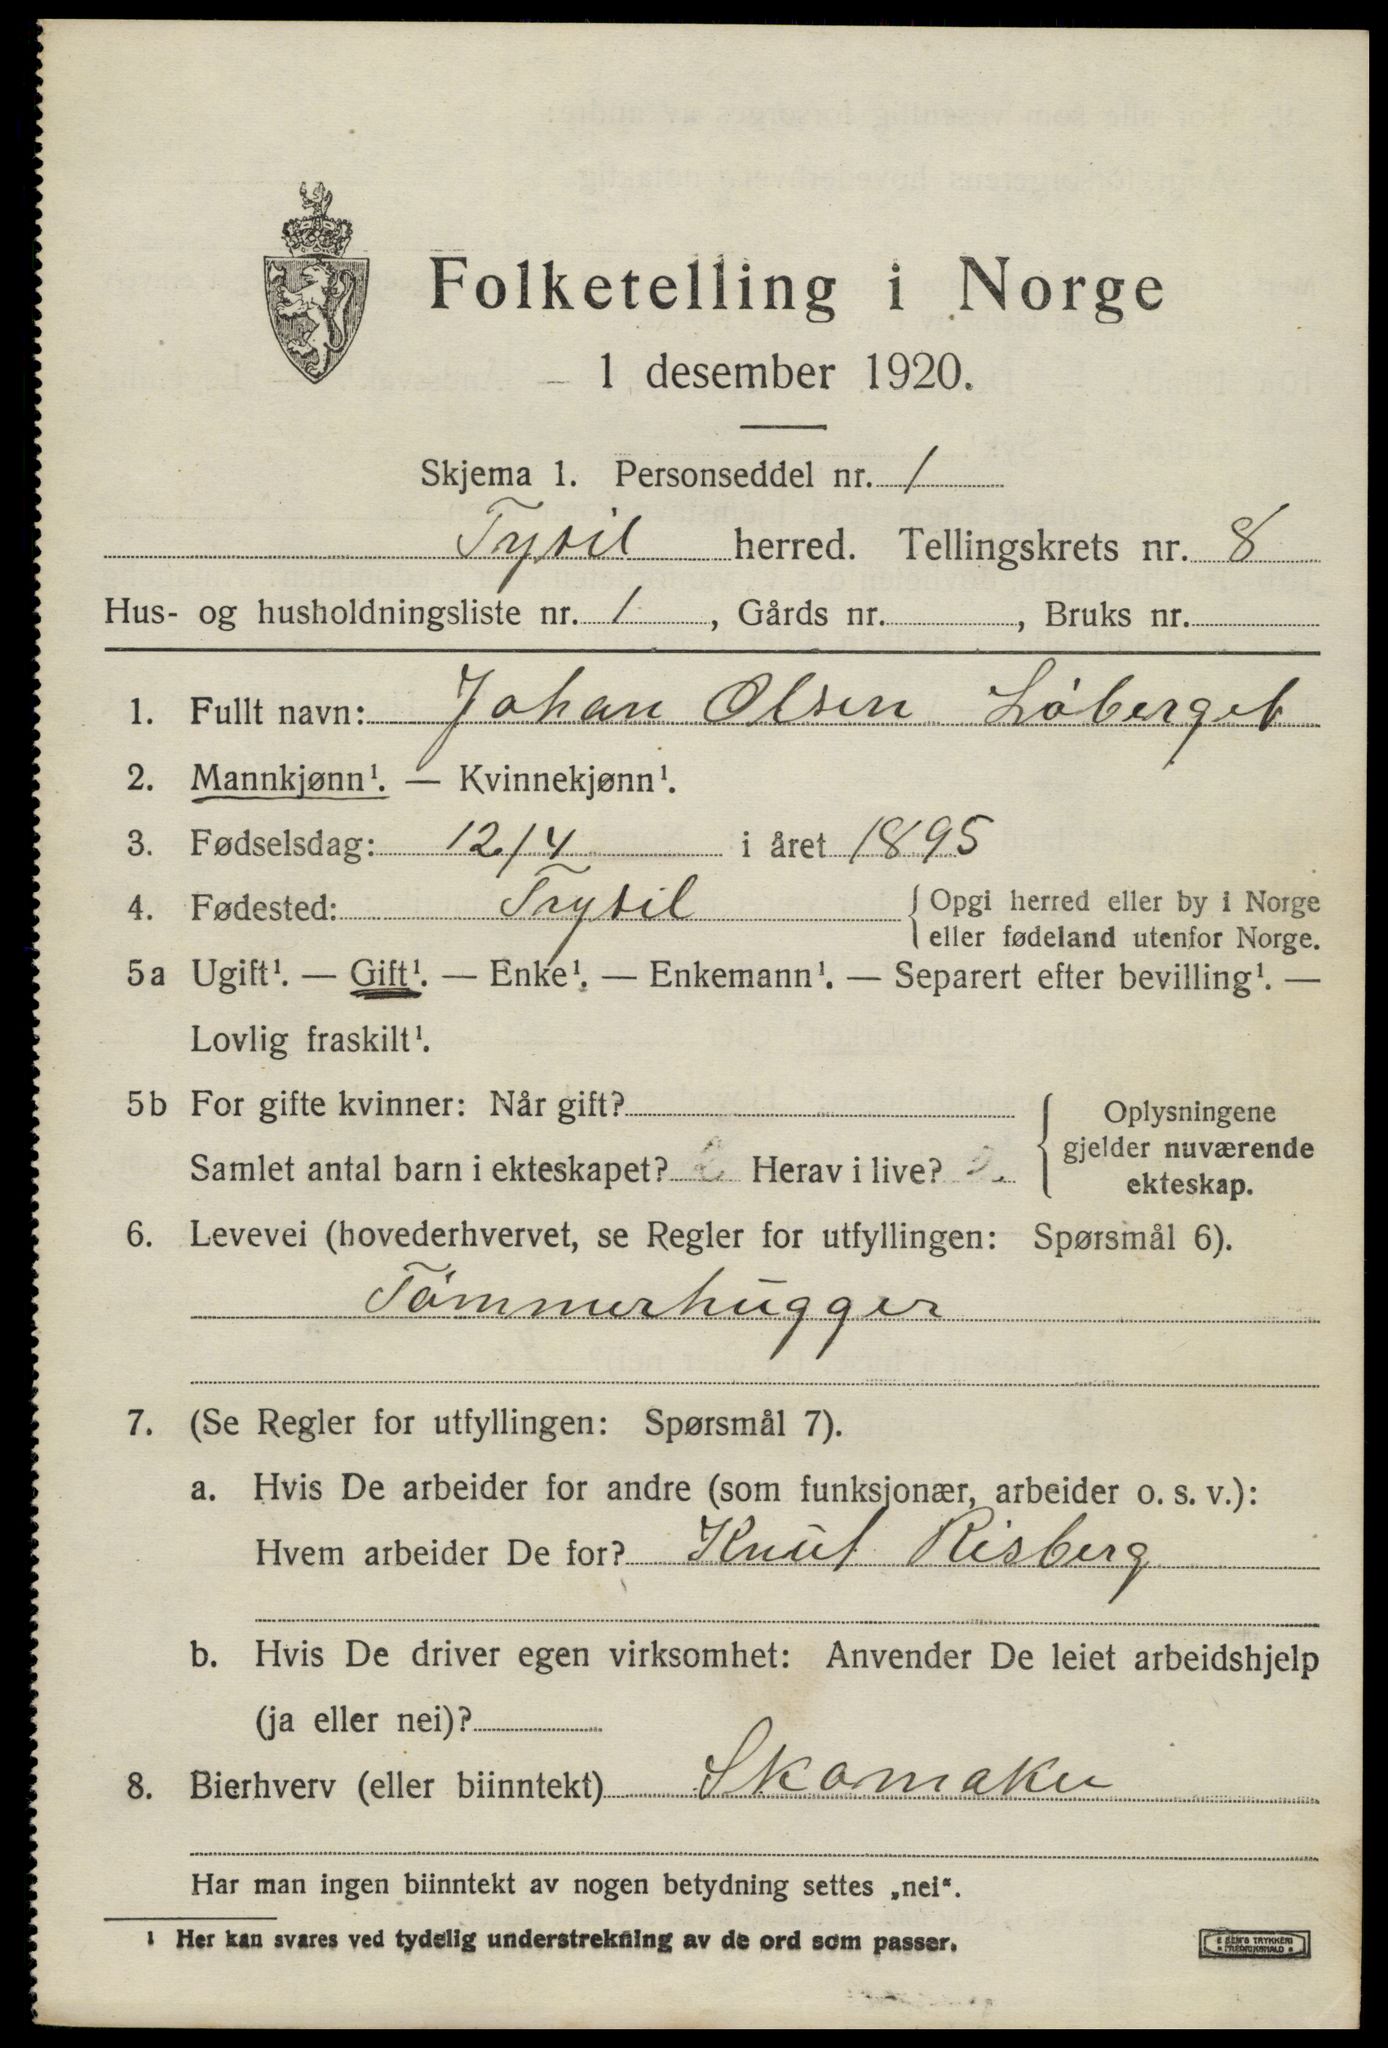 Folketelling i Norge
1 desember 1920.
Skjema 1. Personseddel nr. 1
Trysil herred. Tellingskrets nr. 8
Hus- og husholdningsliste nr. 1, Gårds nr. , Bruks nr.
1. Fullt navn: Johan Olsen Löberget
2. Mannkjønn¹. — Kvinnekjønn¹.
3. Fødselsdag: 12/4 i året 1895
4. Fødested: Trysil { Opgi herred eller by i Norge
eller fødeland utenfor Norge.
5a Ugift¹. — Gift¹. — Enke¹. — Enkemann¹. — Separert efter bevilling¹. —
Lovlig fraskilt¹.
5b For gifte kvinner: Når gift?
Samlet antal barn i ekteskapet? Herav i live?
Oplysningene
gjelder nuværende
ekteskap.
6. Levevei (hovederhvervet, se Regler for utfyllingen: Spørsmål 6).
Tömmerhugger
7. (Se Regler for utfyllingen: Spørsmål 7).
a. Hvis De arbeider for andre (som funksjonær, arbeider o. s. v.):
Hvem arbeider De for? Knut Risberg
b. Hvis De driver egen virksomhet: Anvender De leiet arbeidshjelp
(ja eller nei)?
8. Bierhverv (eller biinntekt) Skomaker
Har man ingen biinntekt av nogen betydning settes „nei“.
¹ Her kan svares ved tydelig understrekning av de ord som passer.
TRYKKERI
FREDRIKSHALD